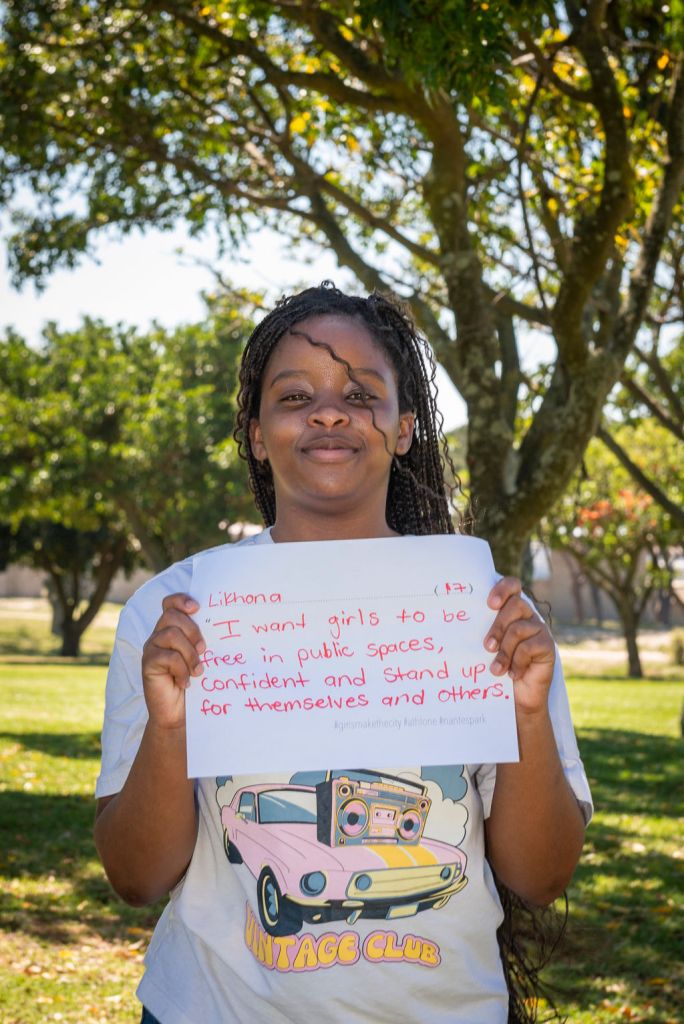 Likhona (17)
"I want girls to be
free in public spaces,
confident and stand up
for themselves and others.
#girlsmakethecity #athlone #nantespark
VINTAGE CLUB